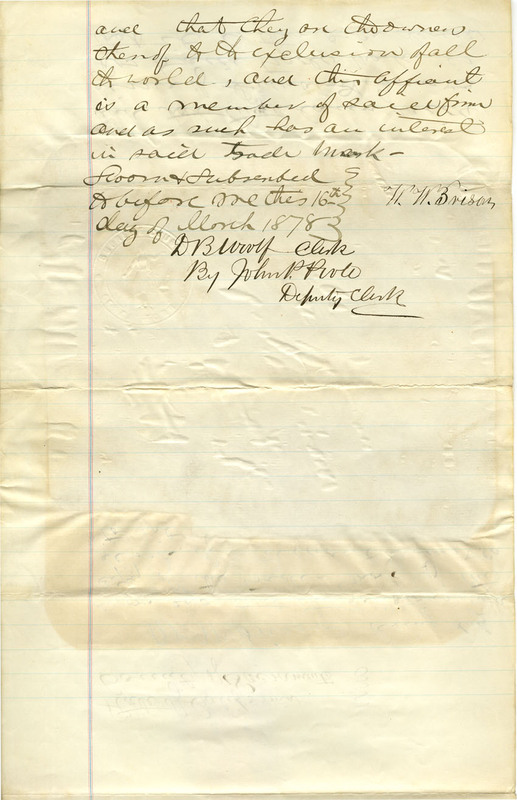 and that they are the owners
thereof to the exclusion of all
the world, and this affiant
is a member of said firm
and as such has an interest
in said trade Mark -
Sworn & Subscribed
& before me this 16th W. W. Brison
day of March 1878
D B Woolf Clerk
By John P.
Deputy Clerk